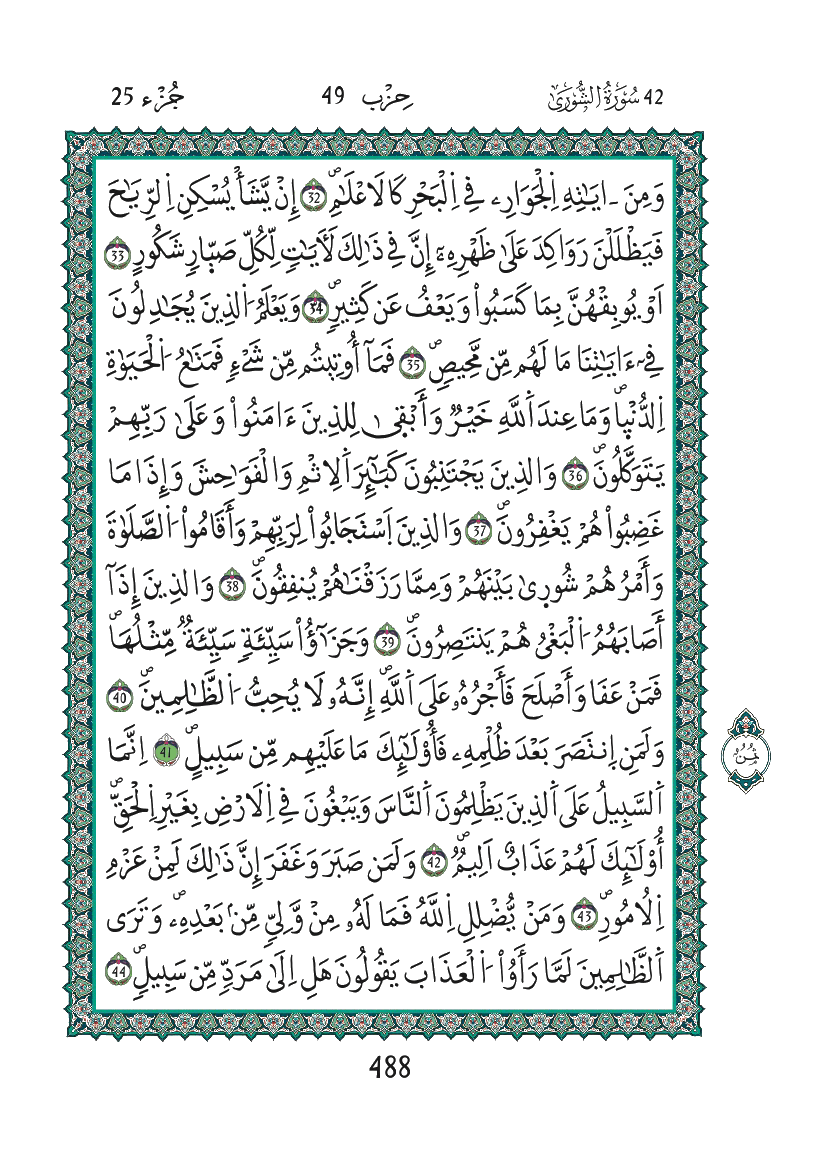 42 سُورَةُ الشُّورَىٰ حِزْب 49 جُزْء 25
وَمِنَ ـ ايَٰتِهِ اِ۬لْجَوَارِۦ فِے اِ۬لْبَحْرِ كَالَاعْلَٰمِۖ 32 إِنْ يَّشَأْ يُسْكِنِ اِ۬لرِّيَٰحَ
فَيَظْلَلْنَ رَوَاكِدَ عَلَىٰ ظَهْرِهِۦٓ إِنَّ فِے ذَٰلِكَ لَأٓيَٰتٖ لِّكُلِّ صَبّ۪ارٖ شَكُورٍ 33
اَوْ يُوبِقْهُنَّ بِمَا كَسَبُواْ وَيَعْفُ عَن كَثِيرٖۖ 34 وَيَعْلَمُ اَ۬لذِينَ يُجَٰدِلُونَ
فِےٓ ءَايَٰتِنَا مَا لَهُم مِّن مَّحِيصٖۖ 35 فَمَآ أُوتِيتُم مِّن شَےْءٖ فَمَتَٰعُ اُ۬لْحَيَوٰةِ
اِ۬لدُّنْي۪اۖ وَمَا عِندَ اَ۬للَّهِ خَيْرٞ وَأَبْق۪ىٰ لِلذِينَ ءَامَنُواْ وَعَلَىٰ رَبِّهِمْ
يَتَوَكَّلُونَۖ 36 وَالذِينَ يَجْتَنِبُونَ كَبَٰٓئِرَ اَ۬لِاثْمِ وَالْفَوَٰحِشَ وَإِذَا مَا
غَضِبُواْ هُمْ يَغْفِرُونَۖ 37 وَالذِينَ اَ۪سْتَجَابُواْ لِرَبِّهِمْ وَأَقَامُواْ اُ۬لصَّلَوٰةَ
وَأَمْرُهُمْ شُور۪ىٰ بَيْنَهُمْ وَمِمَّا رَزَقْنَٰهُمْ يُنفِقُونَۖ 38 وَالذِينَ إِذَآ
أَصَابَهُمُ اُ۬لْبَغْيُ هُمْ يَنتَصِرُونَۖ 39 وَجَزَٰٓؤُاْ سَيِّئَةٖ سَيِّئَةٞ مِّثْلُهَاۖ
فَمَنْ عَفَا وَأَصْلَحَ فَأَجْرُهُۥ عَلَى اَ۬للَّهِۖ إِنَّهُۥ لَا يُحِبُّ اُ۬لظَّٰلِمِينَۖ 40
وَلَمَنِ اِ۪نتَصَرَ بَعْدَ ظُلْمِهِۦ فَأُوْلَٰٓئِكَ مَا عَلَيْهِم مِّن سَبِيلٍۖ 41 اِنَّمَا
اَ۬لسَّبِيلُ عَلَى اَ۬لذِينَ يَظْلِمُونَ اَ۬لنَّاسَ وَيَبْغُونَ فِے اِ۬لَارْضِ بِغَيْرِ اِ۬لْحَقِّۖ
أُوْلَٰٓئِكَ لَهُمْ عَذَابٌ اَلِيمٞۖ 42 وَلَمَن صَبَرَ وَغَفَرَ إِنَّ ذَٰلِكَ لَمِنْ عَزْمِ
اِ۬لُامُورِۖ 43 وَمَنْ يُّضْلِلِ اِ۬للَّهُ فَمَا لَهُۥ مِنْ وَّلِيّٖ مِّنۢ بَعْدِهِۦ وَتَرَى
اَ۬لظَّٰلِمِينَ لَمَّا رَأَوُاْ اُ۬لْعَذَابَ يَقُولُونَ هَلِ اِلَىٰ مَرَدّٖ مِّن سَبِيلٖۖ 44
ثُمُن
488